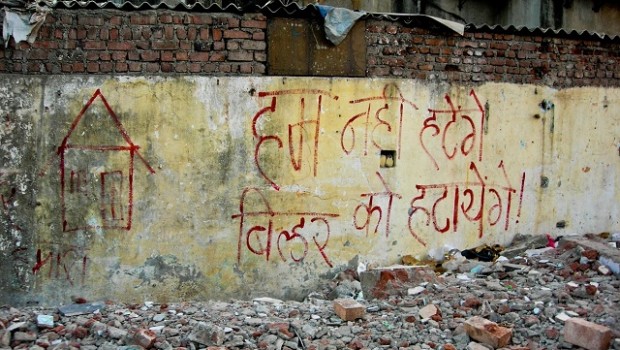 हम नहीं हटेंगे
बिल्डर को हटायेंगे!